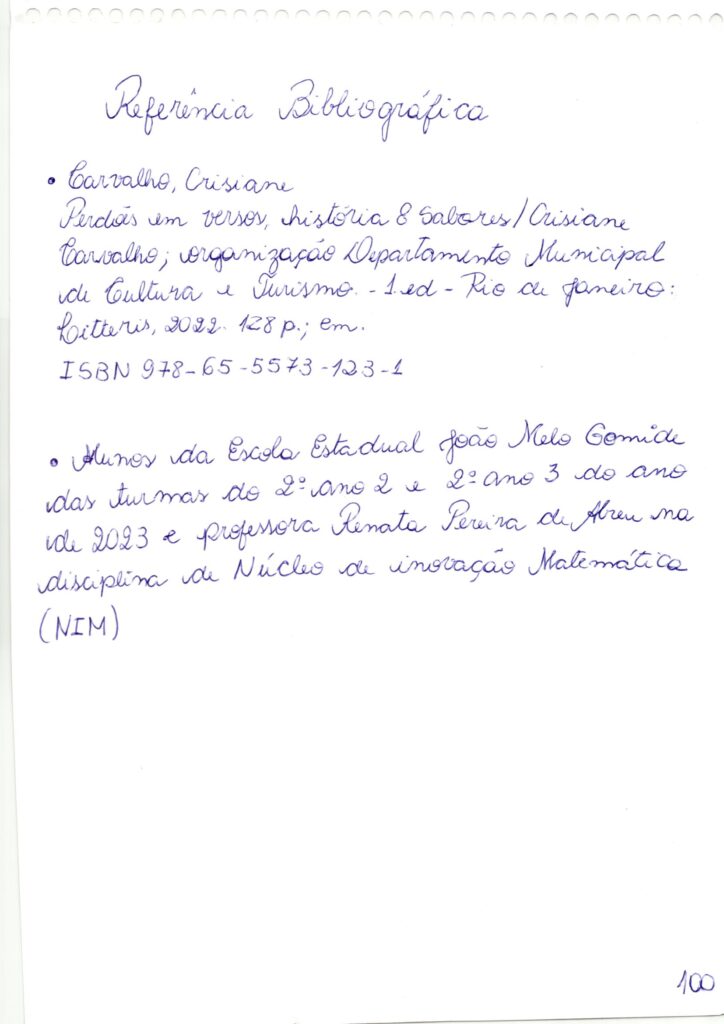 Referência Bibliográfica
• Carvalho, Crisiane
Perdões em versos, história & Sabores/Crisiane
Carvalho; organização Departamento Municipal
de Cultura e Turismo. - 1.ed - Rio de Janeiro:
Litteris, 2022. 128 p.; em.
ISBN 978-65-5573-123-1
• Alunos da Escola Estadual João Melo Gomide
das turmas do 2º ano 2 e 2º ano 3 do ano
de 2023 e professora Renata Pereira de Abreu na
disciplina de Núcleo de inovação Matemática
(NIM)
100